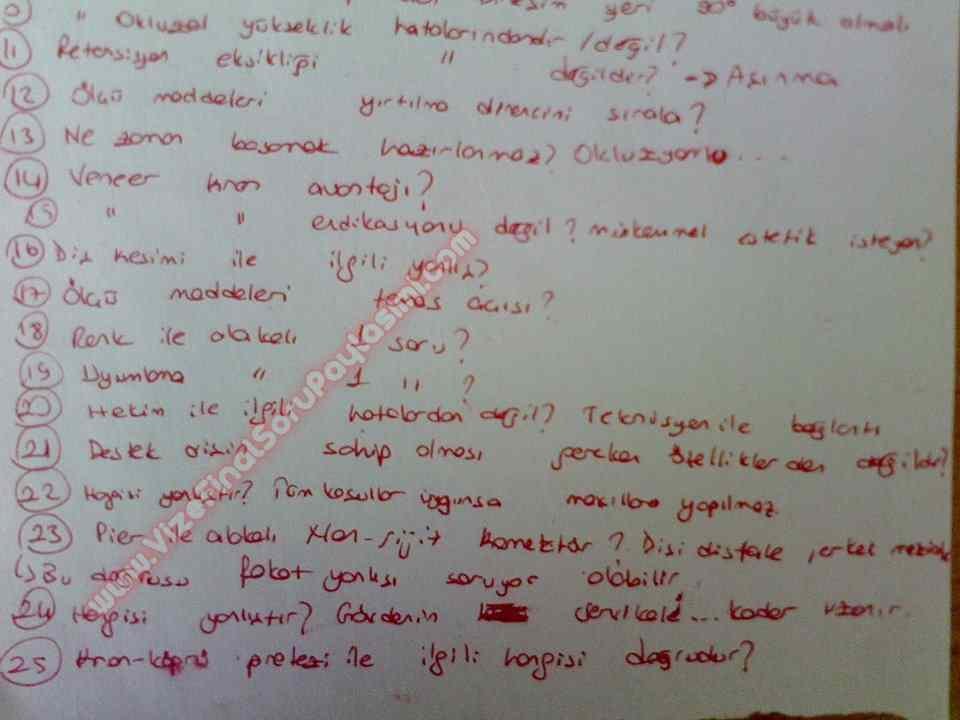 yeri 90° büyük olmalı
" Okluzal yükseklik hatalarındandır / değil?
11 Retansiyon eksikliği " değildir? → Aşınma
12 Ölçü maddeleri yırtılma direncini sırala?
13 Ne zaman basamak hazırlanmaz? Okluzyonlu ...
14 Veneer kron avantajı?
15 " " endikasyonu değil? mükemmel estetik isteyen?
16 Diş kesimi ile ilgili yanlış?
17 Ölçü maddeleri temas açısı?
18 Renk ile alakalı 1 soru?
19 Uyumlama " 1 " ?
20 Hekim ile ilgili hatalardan değil? Teknisyen ile bağlantı
21 Destek dişin sahip olması gereken özelliklerden değildir?
22 Hangisi yanlıştır? Tüm koşullar uygunsa maxillare yapılmaz.
23 Pier ile alakalı Non-rijit konektör? Dişi distale, erkek meziale
↳ Bu doğrusu fakat yanlışı soruyor olabilir
24 Hangisi yanlıştır? Gövdenin servikale... kadar uzanır.
25 Kron-köprü protezi ile ilgili hangisi doğrudur?
www.VizeFinalSoruPaylasimi.com